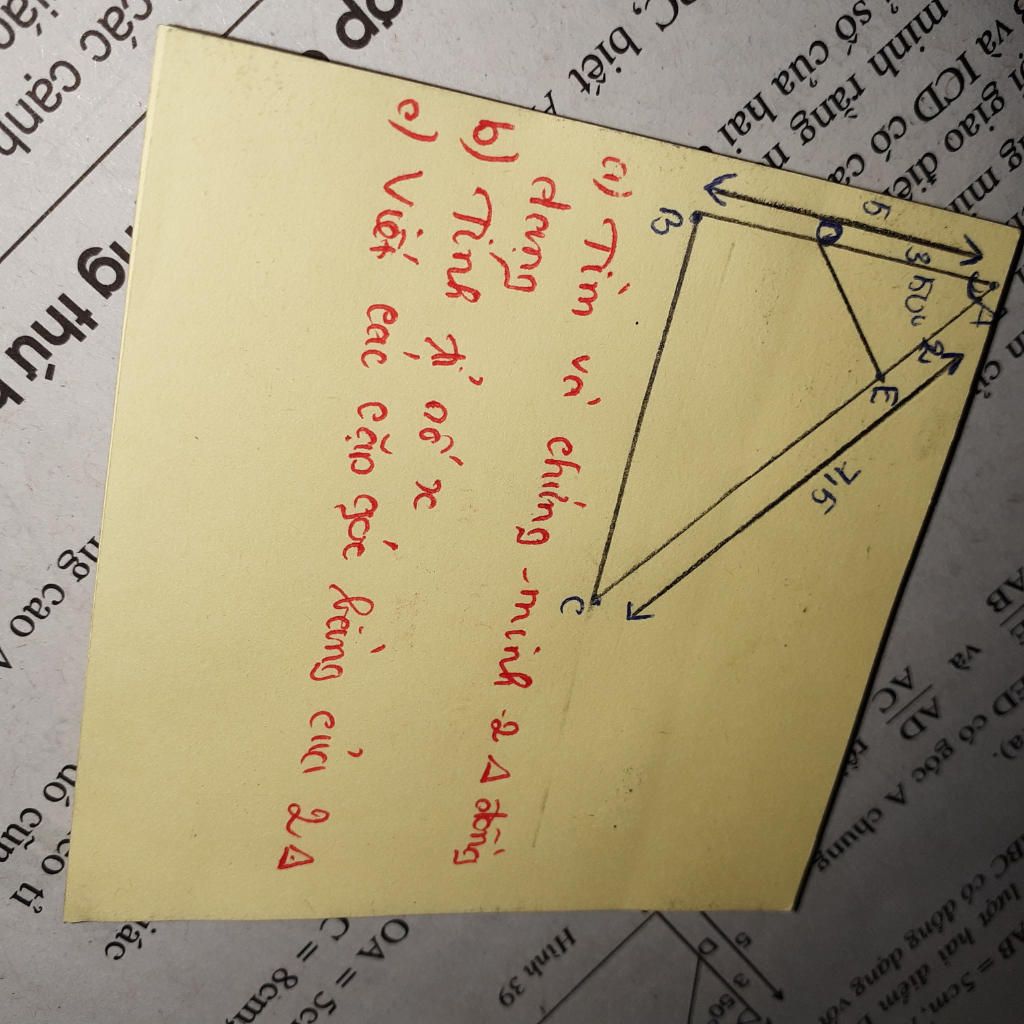 5
A
3 50° 2
D
E
7,5
B
C
a) Tìm và chứng minh 2 Δ đồng
dạng
b) Tính tỉ số x
c) Viết các cặp góc bằng của 2 Δ
các cạnh
ng thứ
ng cao
C, biết
số của hai
minh rằng
và ICD có
giao điể
AB
và
AD
AC
ED có góc A chung
BC có đồng dạng với
lượt hai điểm
AB = 5cm,
5
D
3 50°
Hình 39
OA = 5c
C = 8cm
đó cũn
có tỉ
iác